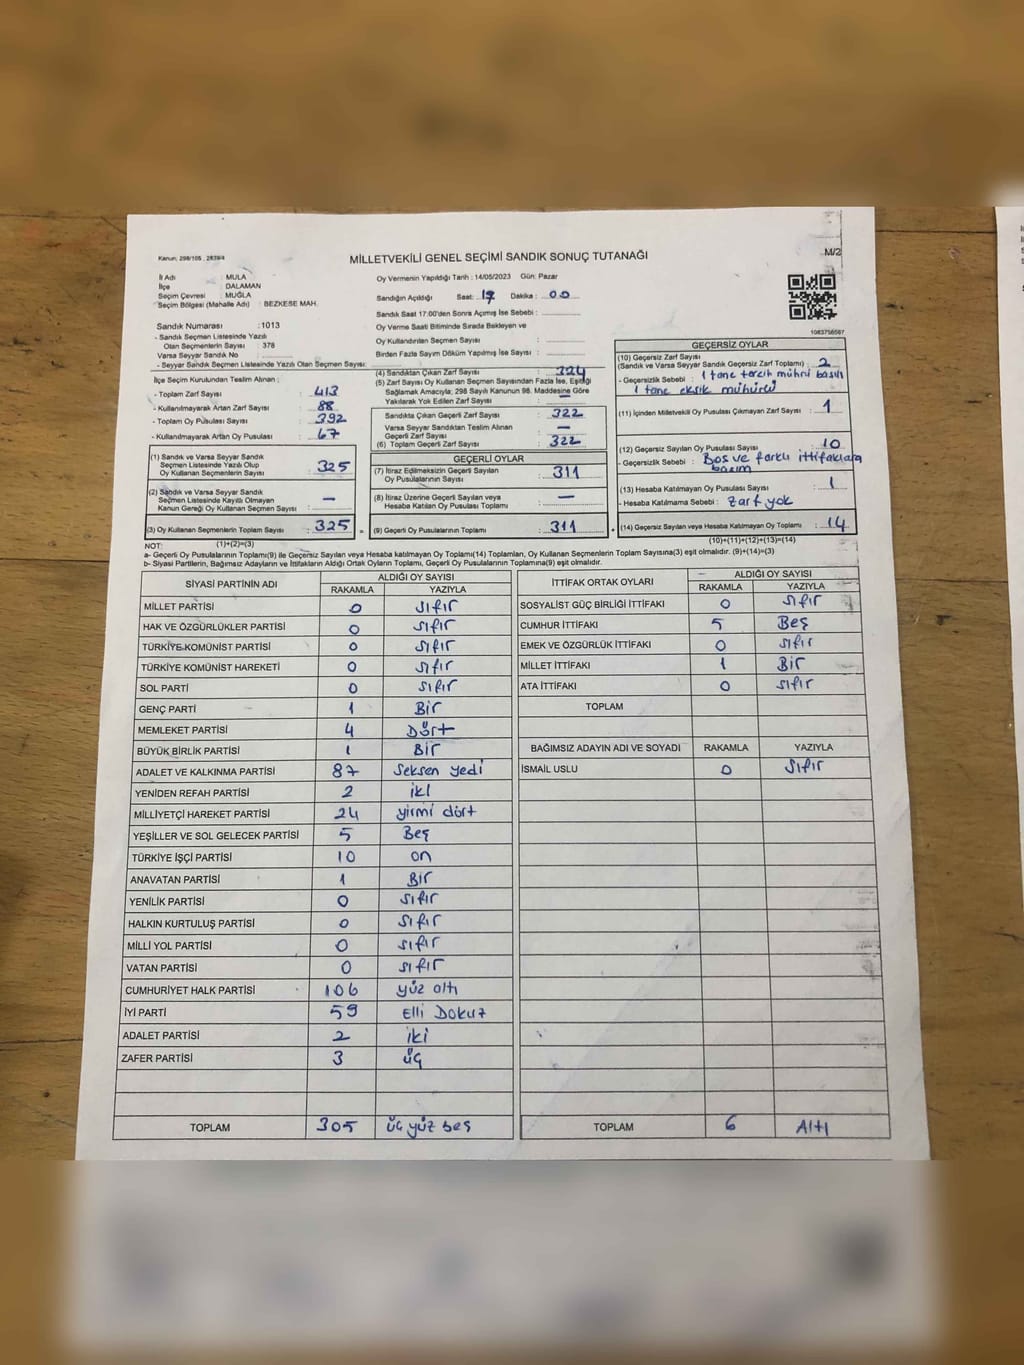 Kanun: 298/105 , 2839/4
MİLLETVEKİLİ GENEL SEÇİMİ SANDIK SONUÇ TUTANAĞI
M/2
İl Adı : MULA
İlçe : DALAMAN
Seçim Çevresi : MUĞLA
Seçim Bölgesi (Mahalle Adı) : BEZKESE MAH.
Sandık Numarası : 1013
- Sandık Seçmen Listesinde Yazılı
Olan Seçmenlerin Sayısı : 378
Varsa Seyyar Sandık No :
- Seyyar Sandık Seçmen Listesinde Yazılı Olan Seçmen Sayısı:
Oy Vermenin Yapıldığı Tarih : 14/05/2023 Gün: Pazar
Sandığın Açıldığı Saat: 17 Dakika : 00
Sandık Saat 17.00'den Sonra Açılmış İse Sebebi :
Oy Verme Saati Bitiminde Sırada Bekleyen ve
Oy Kullandırılan Seçmen Sayısı :
Birden Fazla Sayım Döküm Yapılmış İse Sayısı :
1083756567
İlçe Seçim Kurulundan Teslim Alınan ;
- Toplam Zarf Sayısı : 413
- Kullanılmayarak Artan Zarf Sayısı : 88
- Toplam Oy Pusulası Sayısı : 392
- Kullanılmayarak Artan Oy Pusulası : 67
(1) Sandık ve Varsa Seyyar Sandık
Seçmen Listesinde Yazılı Olup
Oy Kullanan Seçmenlerin Sayısı : 325
(2) Sandık ve Varsa Seyyar Sandık
Seçmen Listesinde Kayıtlı Olmayan
Kanun Gereği Oy Kullanan Seçmen Sayısı : —
(3) Oy Kullanan Seçmenlerin Toplam Sayısı : 325 =
(1)+(2)=(3)
(4) Sandıktan Çıkan Zarf Sayısı : 324
(5) Zarf Sayısı Oy Kullanan Seçmen Sayısından Fazla İse, Eşitliği
Sağlamak Amacıyla; 298 Sayılı Kanunun 98. Maddesine Göre
Yakılarak Yok Edilen Zarf Sayısı :
Sandıkta Çıkan Geçerli Zarf Sayısı : 322
Varsa Seyyar Sandıktan Teslim Alınan
Geçerli Zarf Sayısı : —
(6) Toplam Geçerli Zarf Sayısı : 322
GEÇERLİ OYLAR
(7) İtiraz Edilmeksizin Geçerli Sayılan
Oy Pusulalarının Sayısı : 311
(8) İtiraz Üzerine Geçerli Sayılan veya
Hesaba Katılan Oy Pusulası Toplamı : —
(9) Geçerli Oy Pusulalarının Toplamı : 311 +
GEÇERSİZ OYLAR
(10) Geçersiz Zarf Sayısı
(Sandık ve Varsa Seyyar Sandık Geçersiz Zarf Toplamı) : 2
- Geçersizlik Sebebi : 1 tane tercih mührü basılı
1 tane eksik mühürlü
(11) İçinden Milletvekili Oy Pusulası Çıkmayan Zarf Sayısı : 1
(12) Geçersiz Sayılan Oy Pusulası Sayısı : 10
- Geçersizlik Sebebi : Boş ve farklı ittifaklara
basım
(13) Hesaba Katılmayan Oy Pusulası Sayısı : 1
- Hesaba Katılmama Sebebi : Zarf yok
(14) Geçersiz Sayılan veya Hesaba Katılmayan Oy Toplamı : 14
(10)+(11)+(12)+(13)=(14)
NOT:
a- Geçerli Oy Pusulalarının Toplamı(9) ile Geçersiz Sayılan veya Hesaba katılmayan Oy Toplamı(14) Toplamları, Oy Kullanan Seçmenlerin Toplam Sayısına(3) eşit olmalıdır. (9)+(14)=(3)
b- Siyasi Partilerin, Bağımsız Adayların ve İttifakların Aldığı Ortak Oyların Toplamı, Geçerli Oy Pusulalarının Toplamına(9) eşit olmalıdır.
SİYASİ PARTİNİN ADI
ALDIĞI OY SAYISI
RAKAMLA YAZIYLA
MİLLET PARTİSİ 0 sıfır
HAK VE ÖZGÜRLÜKLER PARTİSİ 0 sıfır
TÜRKİYE KOMÜNİST PARTİSİ 0 sıfır
TÜRKİYE KOMÜNİST HAREKETİ 0 sıfır
SOL PARTİ 0 sıfır
GENÇ PARTİ 1 Bir
MEMLEKET PARTİSİ 4 Dört
BÜYÜK BİRLİK PARTİSİ 1 Bir
ADALET VE KALKINMA PARTİSİ 87 Seksen yedi
YENİDEN REFAH PARTİSİ 2 iki
MİLLİYETÇİ HAREKET PARTİSİ 24 yirmi dört
YEŞİLLER VE SOL GELECEK PARTİSİ 5 Beş
TÜRKİYE İŞÇİ PARTİSİ 10 on
ANAVATAN PARTİSİ 1 Bir
YENİLİK PARTİSİ 0 sıfır
HALKIN KURTULUŞ PARTİSİ 0 sıfır
MİLLİ YOL PARTİSİ 0 sıfır
VATAN PARTİSİ 0 sıfır
CUMHURİYET HALK PARTİSİ 106 yüz altı
İYİ PARTİ 59 Elli Dokuz
ADALET PARTİSİ 2 iki
ZAFER PARTİSİ 3 üç
TOPLAM 305 üç yüz beş
İTTİFAK ORTAK OYLARI
ALDIĞI OY SAYISI
RAKAMLA YAZIYLA
SOSYALİST GÜÇ BİRLİĞİ İTTİFAKI 0 sıfır
CUMHUR İTTİFAKI 5 Beş
EMEK VE ÖZGÜRLÜK İTTİFAKI 0 sıfır
MİLLET İTTİFAKI 1 Bir
ATA İTTİFAKI 0 sıfır
TOPLAM
BAĞIMSIZ ADAYIN ADI VE SOYADI RAKAMLA YAZIYLA
İSMAİL USLU 0 sıfır
TOPLAM 6 Altı